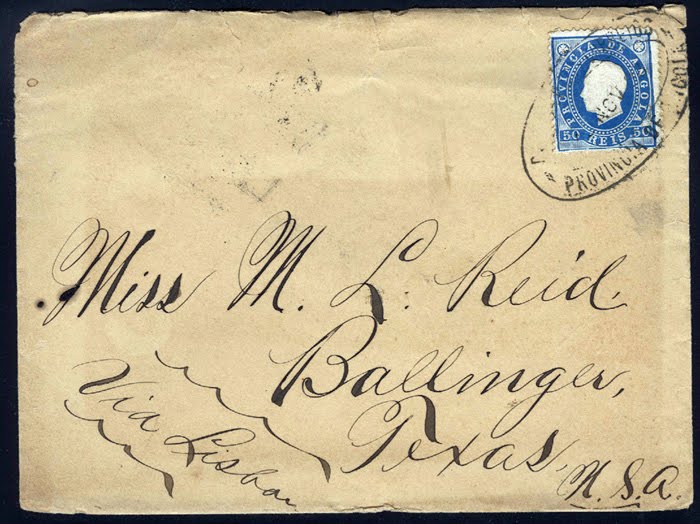 PROVINCIA DE ANGOLA
50 REIS 50
NOV
PROVINCIA DE
Miss M. L. Reid.
Ballinger,
Texas,
U.S.A.
Via Lisbon